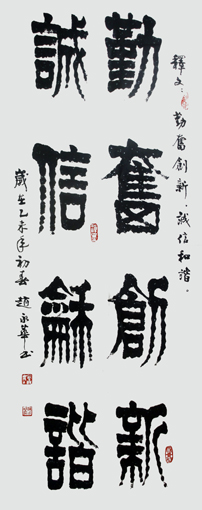 釋文：勤奮創新、誠信和諧。
勤奮創新
誠信龢諧
歲在乙未年初春趙永華書